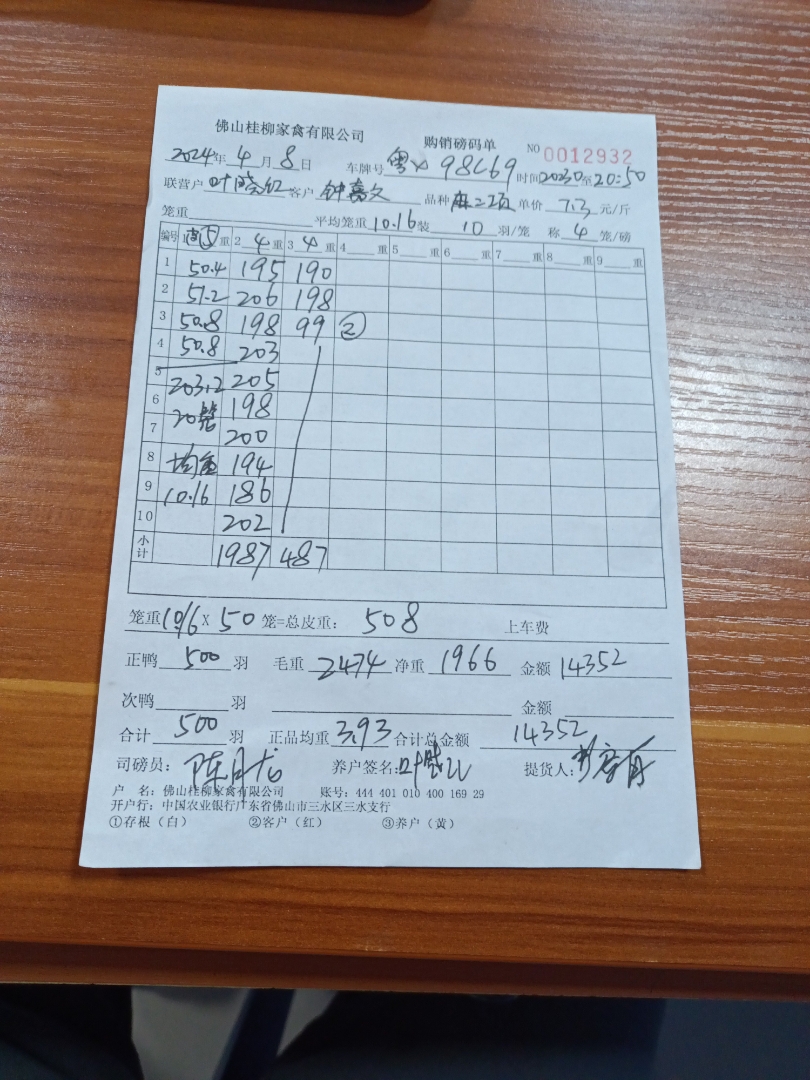 佛山桂柳家禽有限公司 购销磅码单 NO 0012932
2024年 4 月 8 日 车牌号 粤X 98L69 时间 2030 至 20:50
联营户 叶晓红 客户 钟嘉文 品种 麻二项 单价 7.3 元/斤
笼重 平均笼重 10.16 装 10 羽/笼 称 4 笼/磅
编号 1 ⑤ 重 2 4 重 3 4 重 4 重 5 重 6 重 7 重 8 重 9 重
1 50.4 195 190
2 51.2 206 198
3 50.8 198 99 ②
4 50.8 203
5 203.2 205
6 20笼 198
7 200
8 均重 194
9 10.16 186
10 202
小计 1987 487
笼重 10.16 X 50 笼=总皮重: 508 上车费
正鸭 500 羽 毛重 2474 净重 1966 金额 14352
次鸭 羽 金额
合计 500 羽 正品均重 3.93 合计总金额 14352
司磅员: 养户签名: 提货人:
户 名: 佛山桂柳家禽有限公司 账号: 444 401 010 400 169 29
开户行: 中国农业银行广东省佛山市三水区三水支行
①存根（白） ②客户（红） ③养户（黄）